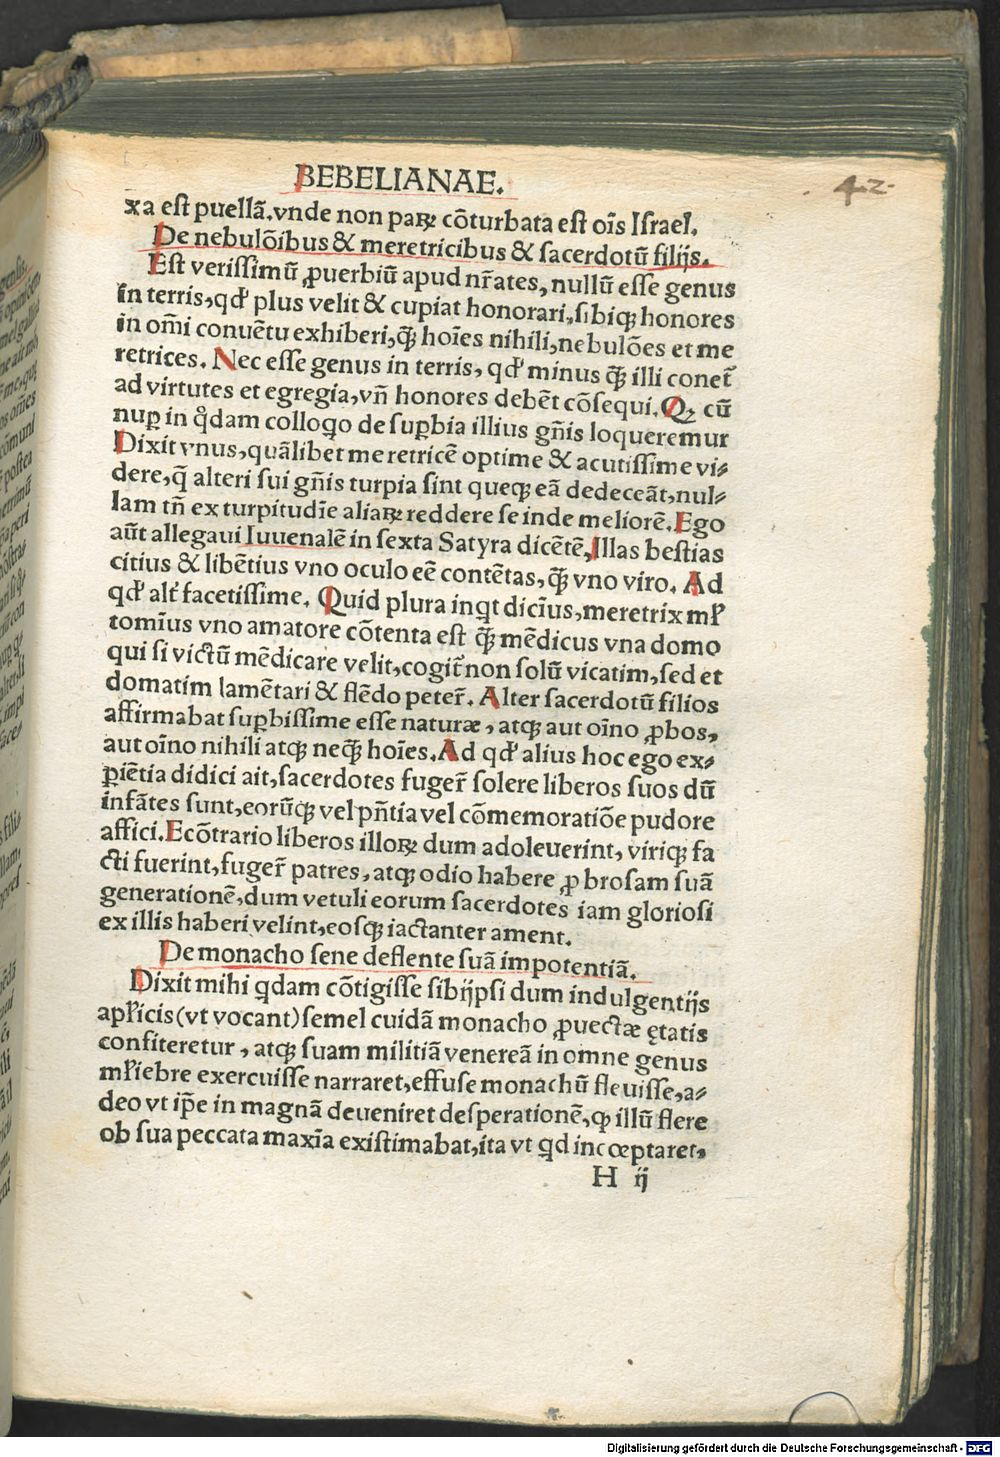 BEBELIANAE.
42.
xa est puellã, vnde non paꝝ cõturbata est oĩs Israel.
De nebulõibus & meretricibus & sacerdotũ filijs.
Est verissimũ ꝓuerbiũ apud nr̃ates, nullũ esse genus
in terris, qđ plus velit & cupiat honorari, sibiqꝫ honores
in om̃i conuẽtu exhiberi, qꝫ̃ hoĩes nihili, nebulões et me
retrices. Nec esse genus in terris, qđ minus qꝫ̃ illi conet᷑
ad virtutes et egregia, vñ honores debẽt cõsequi. Qꝫ cũ
nuꝑ in qͦdam colloqͦ de suꝑbia illius gñis loqueremur
Dixit vnus, quãlibet meretricẽ optime & acutissime vi⸗
dere, q̃ alteri sui gñis turpia sint queqꝫ eã dedeceãt, nul⸗
lam tñ ex turpitudĩe aliaꝝ reddere se inde meliorẽ. Ego
aũt allegaui Iuuenalẽ in sexta Satyra dicẽtẽ, Illas bestias
citius & libẽtius vno oculo eẽ contẽtas, qꝫ̃ vno viro. Ad
qđ alt᷑ facetissime. Quid plura inqͥt diciũs, meretrix ml̓
tomiũs vno amatore cõtenta est qꝫ̃ mẽdicus vna domo
qui si victũ mẽdicare velit, cogit᷑ non solũ vicatim, sed et
domatim lamẽtari & flẽdo peter̃. Alter sacerdotũ filios
affirmabat suꝑbissime esse naturæ, atqꝫ aut oĩno ꝓbos,
aut oĩno nihili atqꝫ neqꝫ̃ hoĩes. Ad qđ alius hoc ego ex⸗
ꝑiẽtia didici ait, sacerdotes fuger̃ solere liberos suos dũ
infãtes sunt, eorũqꝫ vel pñtia vel cõmemoratiõe pudore
affici. Ecõtrario liberos illoꝝ dum adoleuerint, viriqꝫ fa
cti fuerint, fuger̃ patres, atqꝫ odio habere ꝓbrosam suã
generationẽ, dum vetuli eorum sacerdotes iam gloriosi
ex illis haberi velint, eosqꝫ iactanter ament.
De monacho sene deflente suã impotentiã.
Dixit mihi qͥdam cõtigisse sibijpsi dum indulgentijs
apl̓icis (vt vocant) semel cuidã monacho ꝓuectæ ętatis
confiteretur, atqꝫ suam militiã venereã in omne genus
ml̓iebre exercuisse narraret, effuse monachũ fleuisse, a⸗
deo vt ip̃e in magnã deueniret desperationẽ, qꝫ illũ flere
ob sua peccata maxĩa existimabat, ita vt qͥd incœptaret,
H ij
Digitalisierung gefördert durch die Deutsche Forschungsgemeinschaft - DFG